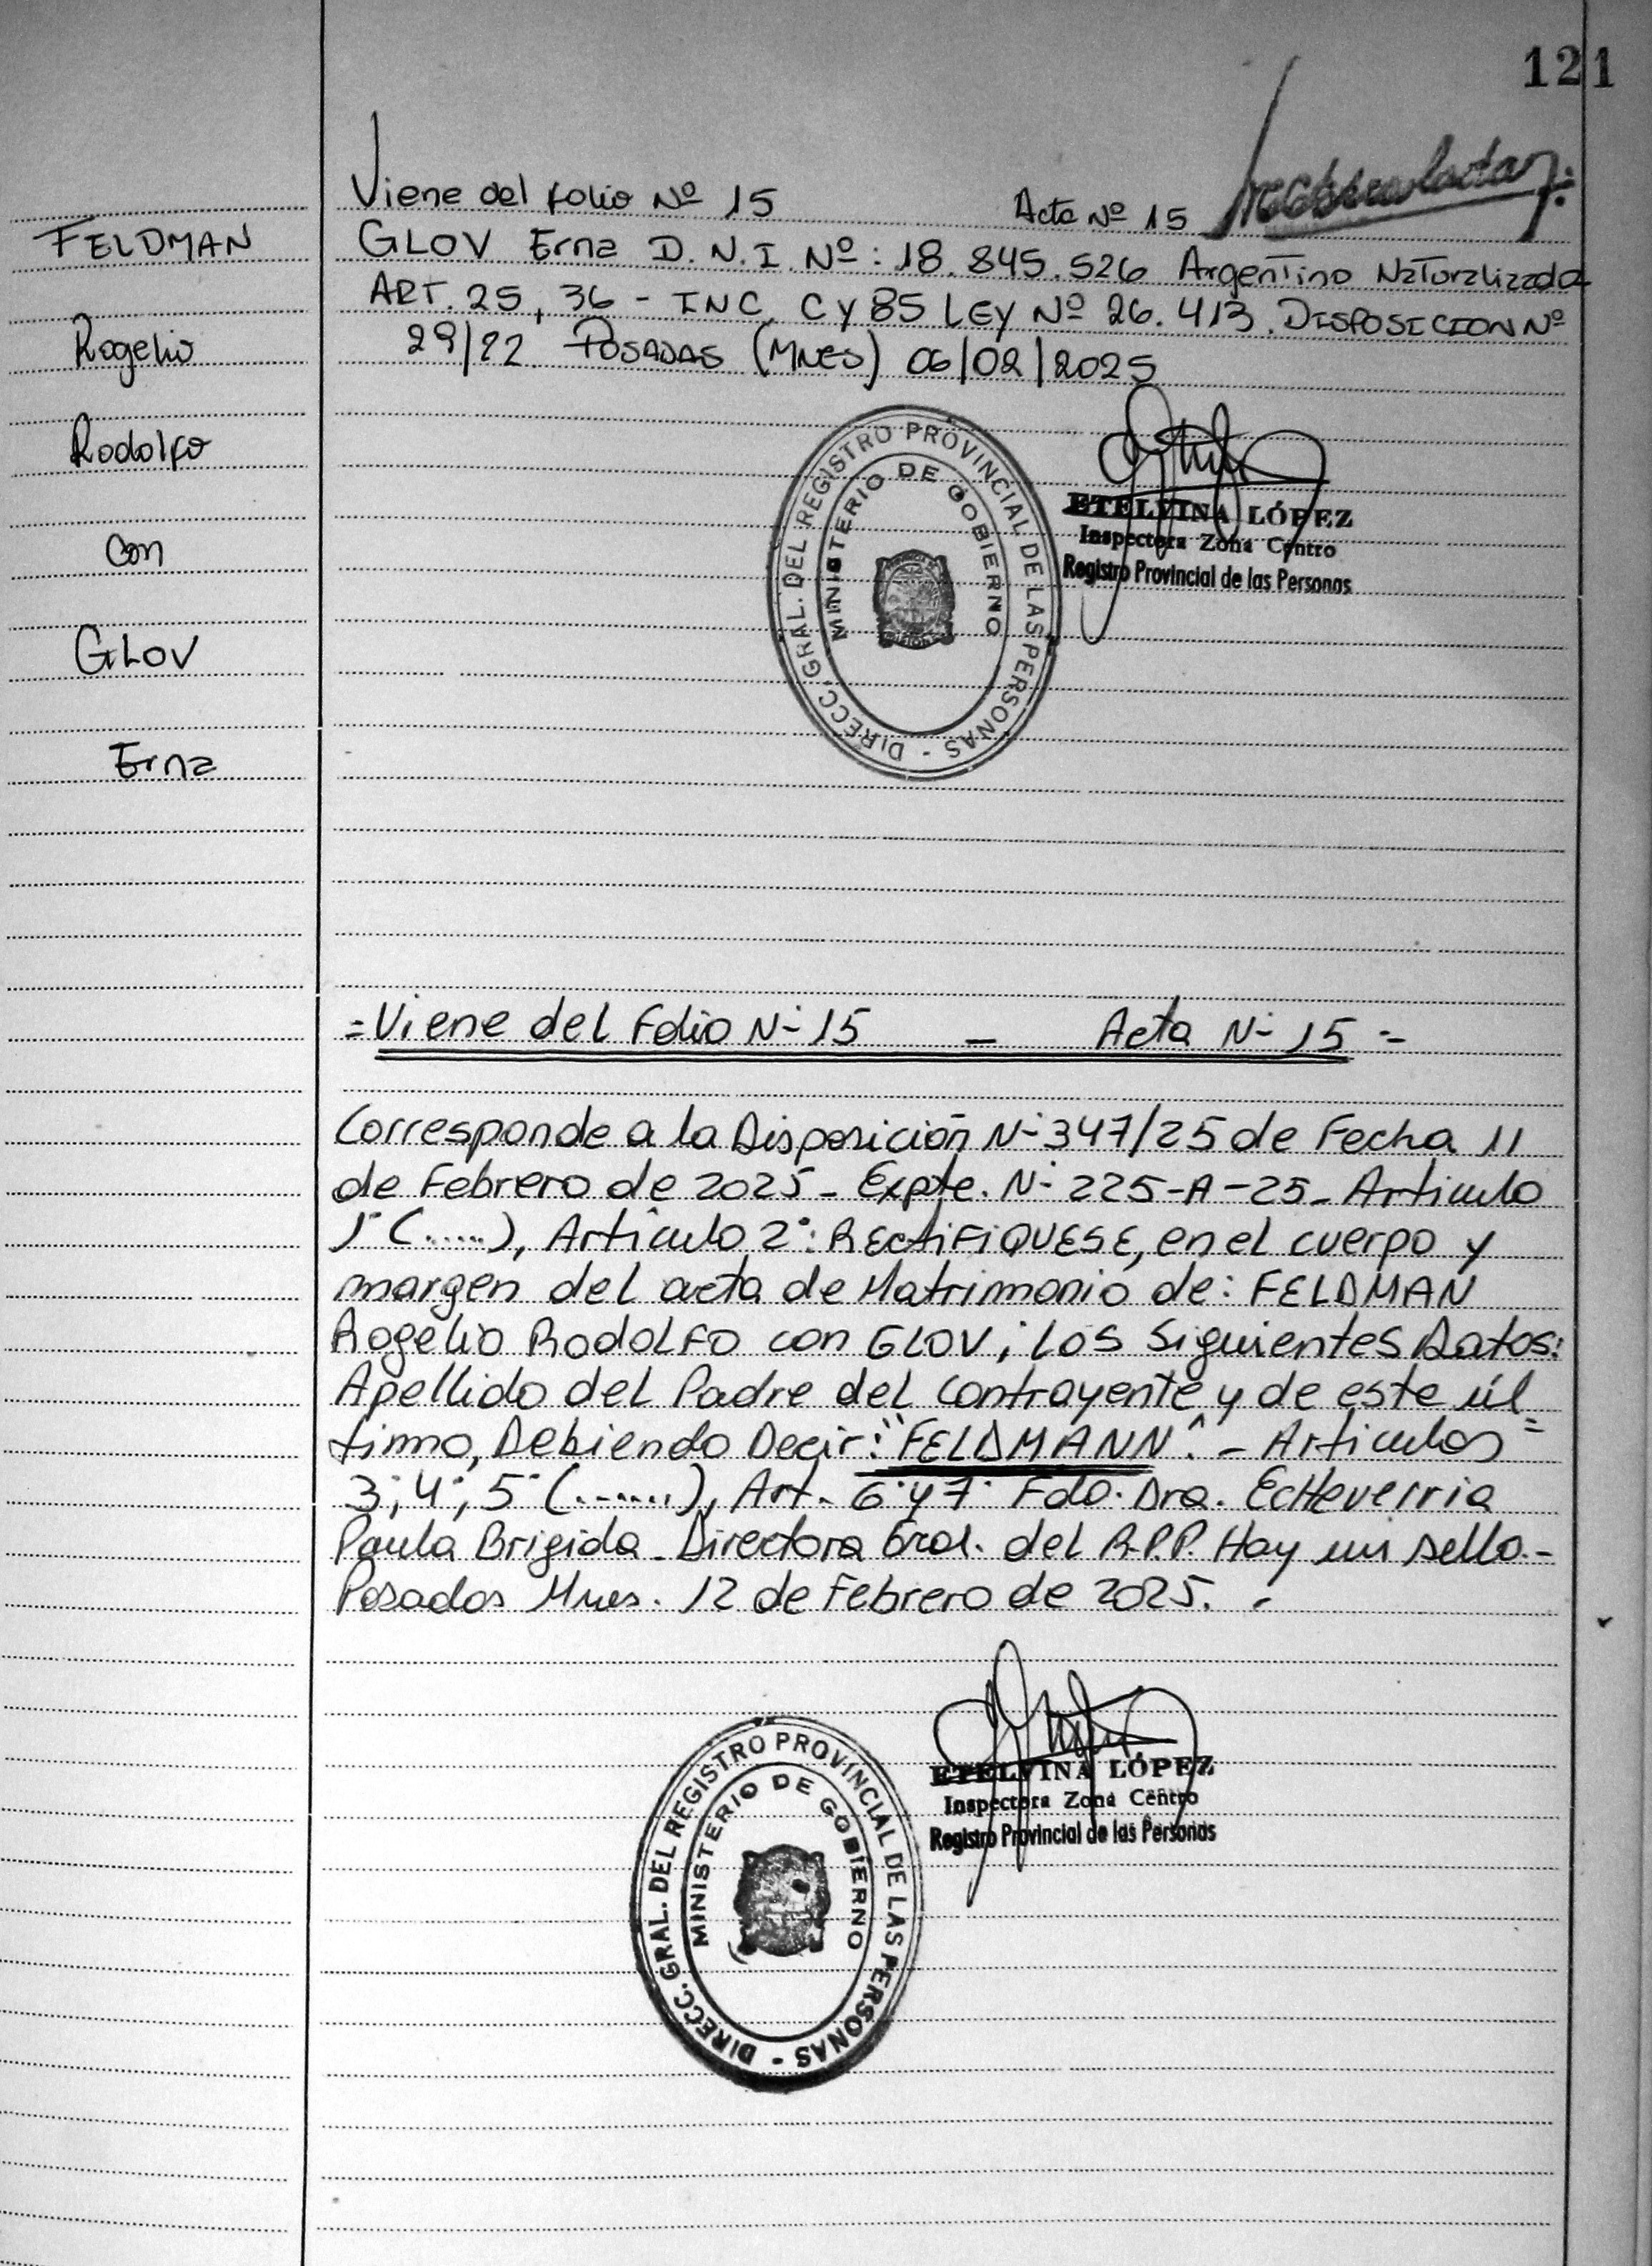 121
Viene del folio Nº 15 Acta Nº 15
FELDMAN
GLOV Erna D.N.I. Nº: 18.845.526 Argentino Naturalizada
ART. 25, 36 - INC. C Y 85 LEY Nº 26.413. DISPOSICION Nº
Rogelio
29/22 POSADAS (MNES) 06/02/2025
Rodolfo
con
GLOV
Erna
DIRECC. GRAL. DEL REGISTRO PROVINCIAL DE LAS PERSONAS -
MINISTERIO DE GOBIERNO
ETELVINA LÓPEZ
Inspectora Zona Centro
Registro Provincial de las Personas
=Viene del Folio N- 15 - Acta N- 15 =
Corresponde a la Disposición N- 347/25 de Fecha 11
de Febrero de 2025 - Expte. N- 225-A-25 - Articulo
1° (.....), Articulo 2°: RECtiFiQUESE, en el cuerpo y
margen del acta de Matrimonio de: FELDMAN
Rogelio RodoLFO con GLOV; Los Siguientes Datos:
Apellido del Padre del Contrayente y de este úl
timo, Debiendo Decir: "FELDMANN". - Articulos
3; 4; 5° (......), Art. 6 y 7 Fdo. Dra. EcHeverria
Paula Brigida - Directora Gral. del R.P.P. Hay un sello.-
Posadas Mnes. 12 de Febrero de 2025. -
DIRECC. GRAL. DEL REGISTRO PROVINCIAL DE LAS PERSONAS -
MINISTERIO DE GOBIERNO
ETELVINA LÓPEZ
Inspectora Zona Centro
Registro Provincial de las Personas